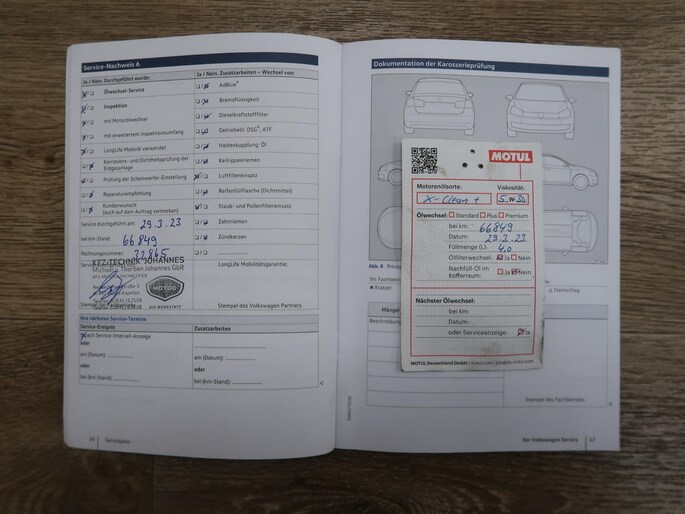 Service-Nachweis 6
Ja / Nein. Durchgeführt wurde:
Ölwechsel-Service
Inspektion
mit Motorölwechsel
mit erweitertem Inspektionsumfang
LongLife Motoröl verwendet
Korrosions- und Dichtheitsprüfung der
Erdgasanlage
Prüfung der Scheinwerfer-Einstellung
Reparaturempfehlung
Kundenwunsch
(auch auf dem Auftrag vermerken)
Service durchgeführt am: 29.3.23
bei km-Stand: 66849
Rechnungsnummer: 22865
KFZ-TECHNIK JOHANNES
MOTOO
DIE WERKSTATT
Ja / Nein. Zusatzarbeiten – Wechsel von:
AdBlue®
Bremsflüssigkeit
Dieselkraftstofffilter
Getriebeöl: DSG®, ATF
Haldexkupplung: Öl
Keilrippenriemen
Luftfiltereinsatz
Reifenfüllflasche (Dichtmittel)
Staub- und Pollenfiltereinsatz
Zahnriemen
Zündkerzen
LongLife Mobilitätsgarantie:
Stempel des Volkswagen Partners.
Ihre nächsten Service-Termine
Service-Ereignis
Zusatzarbeiten
nach Service-Intervall-Anzeige
oder
am (Datum):
oder
bei (km-Stand):
am (Datum):
oder
bei (km-Stand):
16 Serviceplan
Dokumentation der Karosserieprüfung
MOTUL
Motorenölsorte:
Viskosität:
X-Clean +
5 W-30
Ölwechsel: Standard Plus Premium
bei km: 66849
Datum: 29.3.23
Füllmenge (L): 4,0
Ölfilterwechsel: Ja Nein
Nachfüll-Öl im
Kofferraum: Ja Nein
Nächster Ölwechsel:
bei km:
Datum:
oder Serviceanzeige: Ja
MOTUL Deutschland GmbH
Abb. 8
Kratzer
Steinschlag
Stempel des Fachbetriebs.
Der Volkswagen Service 17